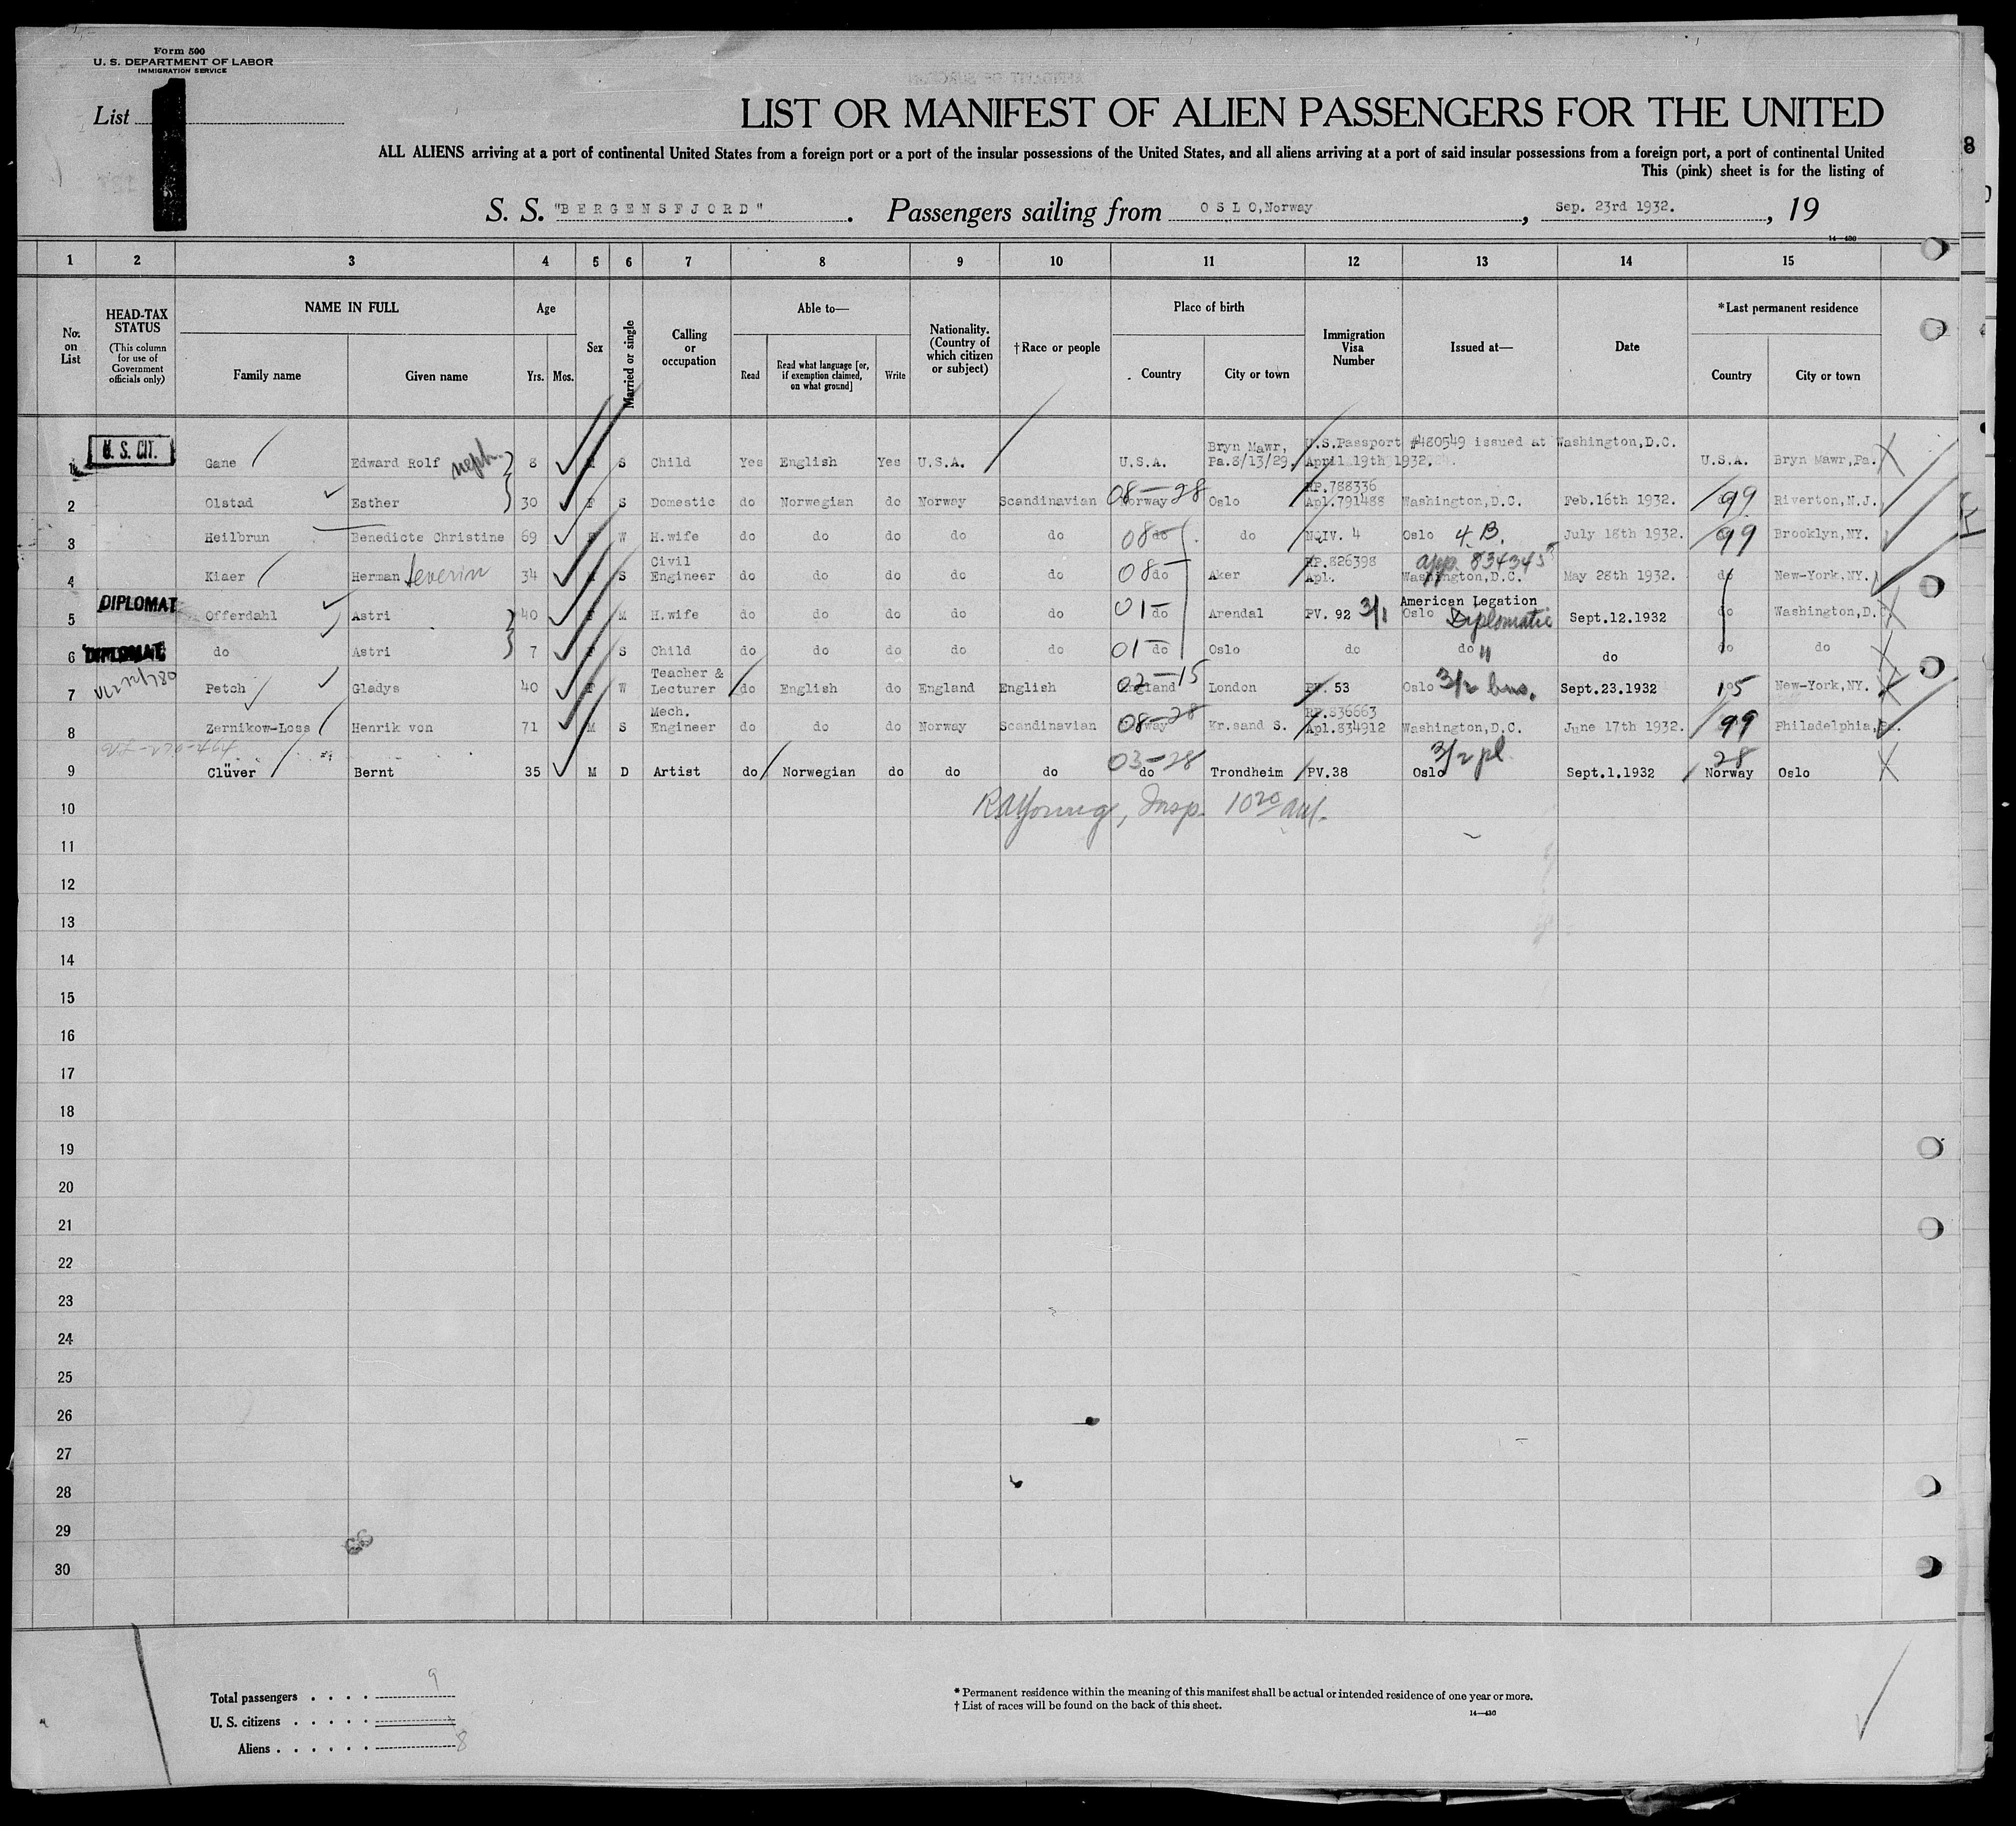 Form 500
U. S. DEPARTMENT OF LABOR
IMMIGRATION SERVICE
List
LIST OR MANIFEST OF ALIEN PASSENGERS FOR THE UNITED
ALL ALIENS arriving at a port of continental United States from a foreign port or a port of the insular possessions of the United States, and all aliens arriving at a port of said insular possessions from a foreign port, a port of continental United
This (pink) sheet is for the listing of
S. S. "BERGENSFJORD" . Passengers sailing from OSLO,Norway , Sep. 23rd 1932. , 19
14—430
8
1 2 3 4 5 6 7 8 9 10 11 12 13 14 15
No. on List
HEAD-TAX STATUS
(This column for use of Government officials only)
NAME IN FULL
Family name Given name
Age
Yrs. Mos.
Sex
Married or single
Calling or occupation
Able to—
Read Read what language [or, if exemption claimed, on what ground] Write
Nationality. (Country of which citizen or subject)
† Race or people
Place of birth
Country City or town
Immigration Visa Number
Issued at—
Date
*Last permanent residence
Country City or town
U. S. CIT.
Bryn Mawr, U.S.Passport #480549 issued at Washington,D.C.
1 Gane Edward Rolf neph. 8 S Child Yes English Yes U.S.A. U.S.A. Pa.8/13/29. April 19th 1932. U.S.A. Bryn Mawr,Pa.
RP.788336
2 Olstad Esther 30 F S Domestic do Norwegian do Norway Scandinavian 08-28 Norway Oslo Apl.791488 Washington,D.C. Feb.16th 1932. 99 Riverton,N.J.
3 Heilbrun Benedicte Christine 69 W H.wife do do do do do 08- do do NQIV. 4 Oslo 4 B. July 18th 1932. 99 Brooklyn,NY.
Civil RP.826398 app. 834345
4 Kiaer Herman Severin 34 S Engineer do do do do do 08- do Aker Apl. Washington,D.C. May 28th 1932. do New-York,NY.
DIPLOMAT American Legation
5 Offerdahl Astri 40 F M H.wife do do do do do 01- do Arendal PV. 92 3/1 Oslo Diplomatic Sept.12.1932 do Washington,D.
6 DIPLOMAT do Astri 7 F S Child do do do do do 01- do Oslo do do " do do do
Teacher &
7 Petch Gladys 40 F W Lecturer do English do England English 02-15 England London PV. 53 Oslo 3/2 bus. Sept.23.1932 15 New-York,NY.
Mech. RP.836663
8 Zernikow-Loss Henrik von 71 M S Engineer do do do Norway Scandinavian 08-28 Norway Kr.sand S. Apl.834912 Washington,D.C. June 17th 1932. 99 Philadelphia,
9 Clüver Bernt 35 M D Artist do Norwegian do do do 03-28 do Trondheim PV.38 Oslo 3/2 pl. Sept.1.1932 28 Norway Oslo
10
Insp. 10 20 am.
11
12
13
14
15
16
17
18
19
20
21
22
23
24
25
26
27
28
29
30
Total passengers . . . . 9
U. S. citizens . . . . .
Aliens . . . . . . 8
* Permanent residence within the meaning of this manifest shall be actual or intended residence of one year or more.
† List of races will be found on the back of this sheet.
14—430